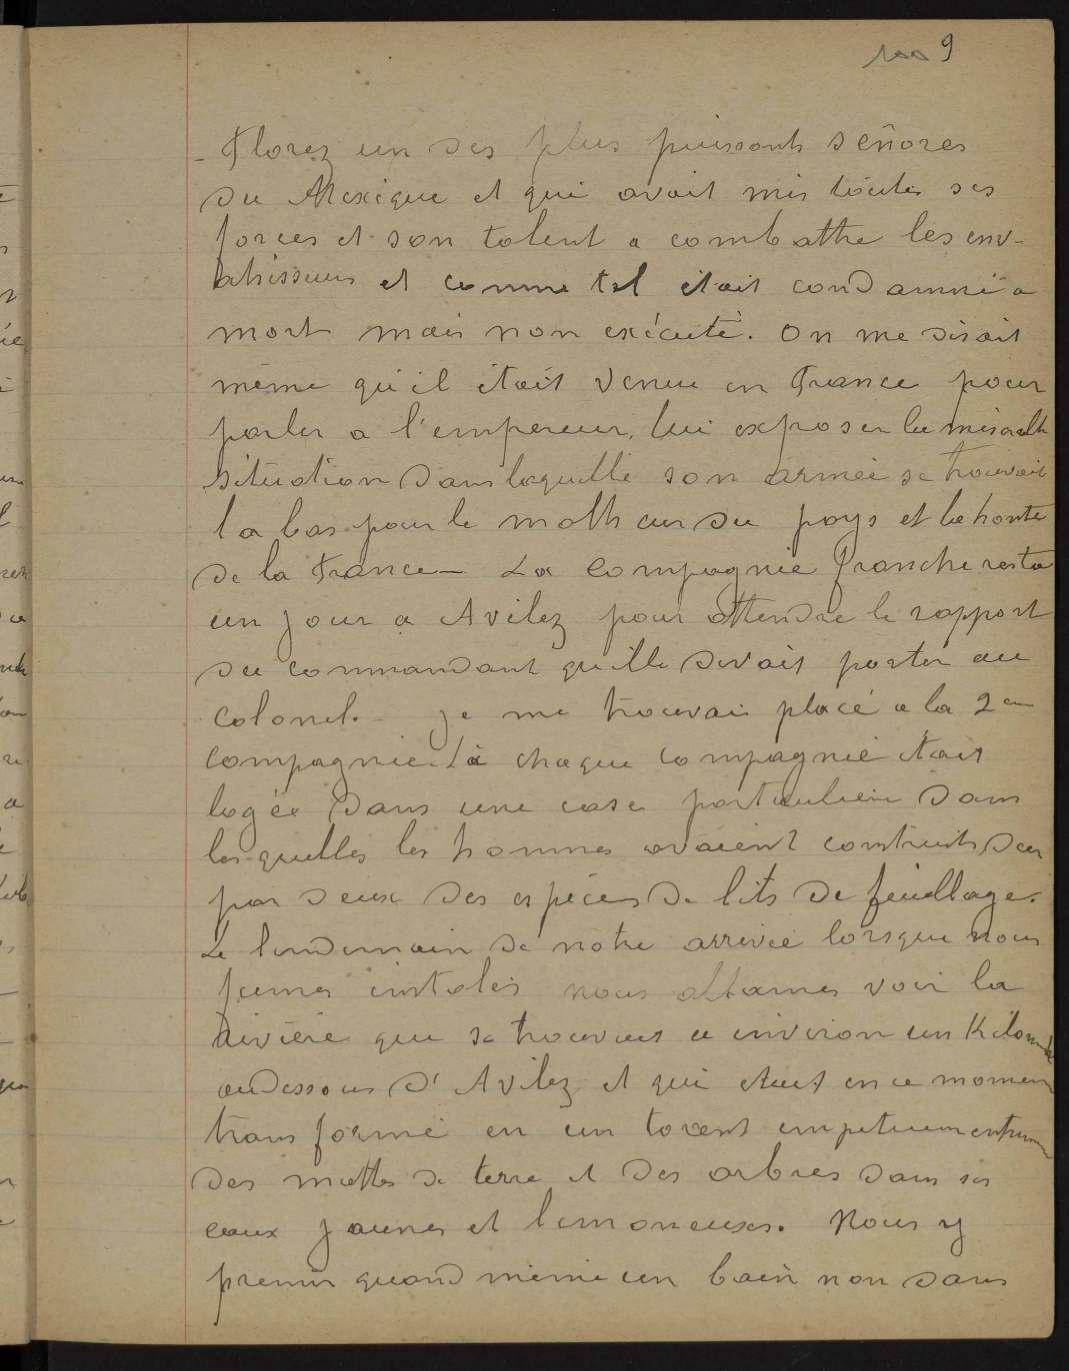 9
- Florez un des plus puissants señores
du Mexique et qui avait mis toutes ses
forces et son talent a combattre les env-
ahisseurs et comme tel était condamné a
mort mais non exécuté. On me disait
même qu'il était venu en France pour
parler a l'empereur, lui exposer la misérable
situation dans laquelle son armée se trouvait
la bas pour le malheur du pays et la honte
de la France — La Compagnie franche resta
un jour a Avilez pour attendre le rapport
du commandant quelle devait porter au
Colonel. - je me trouvai placé a la 2e
compagnie. Là chaque compagnie était
logée dans une case particulière dans
lesquelles les hommes avaient construits deux
par deux des espèces de lits de feuillage.
Le lendemain de notre arrivée lorsque nous
fumes instalés nous allames voir la
rivière qui se trouvait a environ un Kilom
audessous d'Avilez et qui etait en ce moment
transformé en un torent
des mottes de terre et des arbres dans ses
eaux jaunes et limoneuses. Nous y
primes quand même un bain non dans